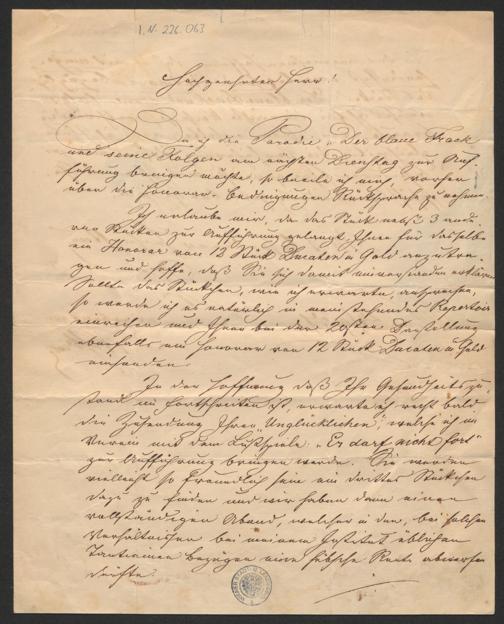 I.N. 226.063
Hochgeehrter Herr!
Da ich die Parodie „Der blaue Frack
und seine Folgen am nächsten Dienstag zur Auf-
führung bringen möchte, so beeile ich mich, vorher
über die Honorar-Bedingungen Rücksprache zu nehmen.
Ich erlaube mir, da das Stück nebst 3 ande-
ren Stücken zur Aufführung gelangt, Ihnen für dasselbe
ein Honorar von 12 Stück Ducaten in Gold anzutra-
gen und hoffe, daß Sie sich damit einverstanden erklären
Sollte das Stückchen, wie ich erwarte, ansprechen,
so werde ich es natürlich in mein stehendes Repertoir
einreihen und Ihnen bei der 20sten Darstellung
ebenfalls ein Honorar von 12 Stück Ducaten in Gold
einsenden.
In der Hoffnung daß Ihr Gesundheitszu-
stand im Fortschreiten ist, erwarte ich recht bald
die Zusendung Ihres „Unglücklichen“, welche ich im
Verein mit dem Lustspiele: „Er darf nicht fort“
zur Aufführung bringen werde. Sie werden
vielleicht so freundlich sein ein drittes Stückchen
dazu zu finden und wir haben dann einen
vollständigen Abend, welcher in den, bei solchen
Verhältnissen bei meinem Institut üblichen
Tantiemen Bezügen eine hübsche Rente abwerfen
dürfte.